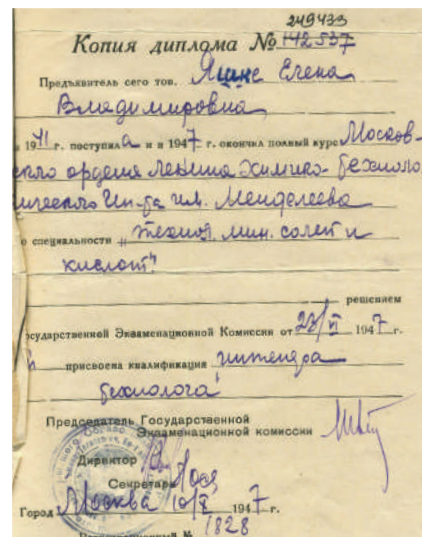 249433
Копия диплома № 142537
Предъявитель сего тов. Яшке Елена
Владимировна
19 41 г. поступила и в 1947 г. окончил полный курс Москов-
ского ордена Ленина Химико-Техноло
гического Ин-та им. Менделеева
о специальности „технол. мин. солей и
кислот"
решением
осударственной Экзаменационной Комиссии от 23/VI 1947 г.
присвоена квалификация инженера
технолога
Председатель Государственной
Экзаменационной комиссии
Директор
Секретарь
Город Москва 10/X 1947 г.
№ 1828